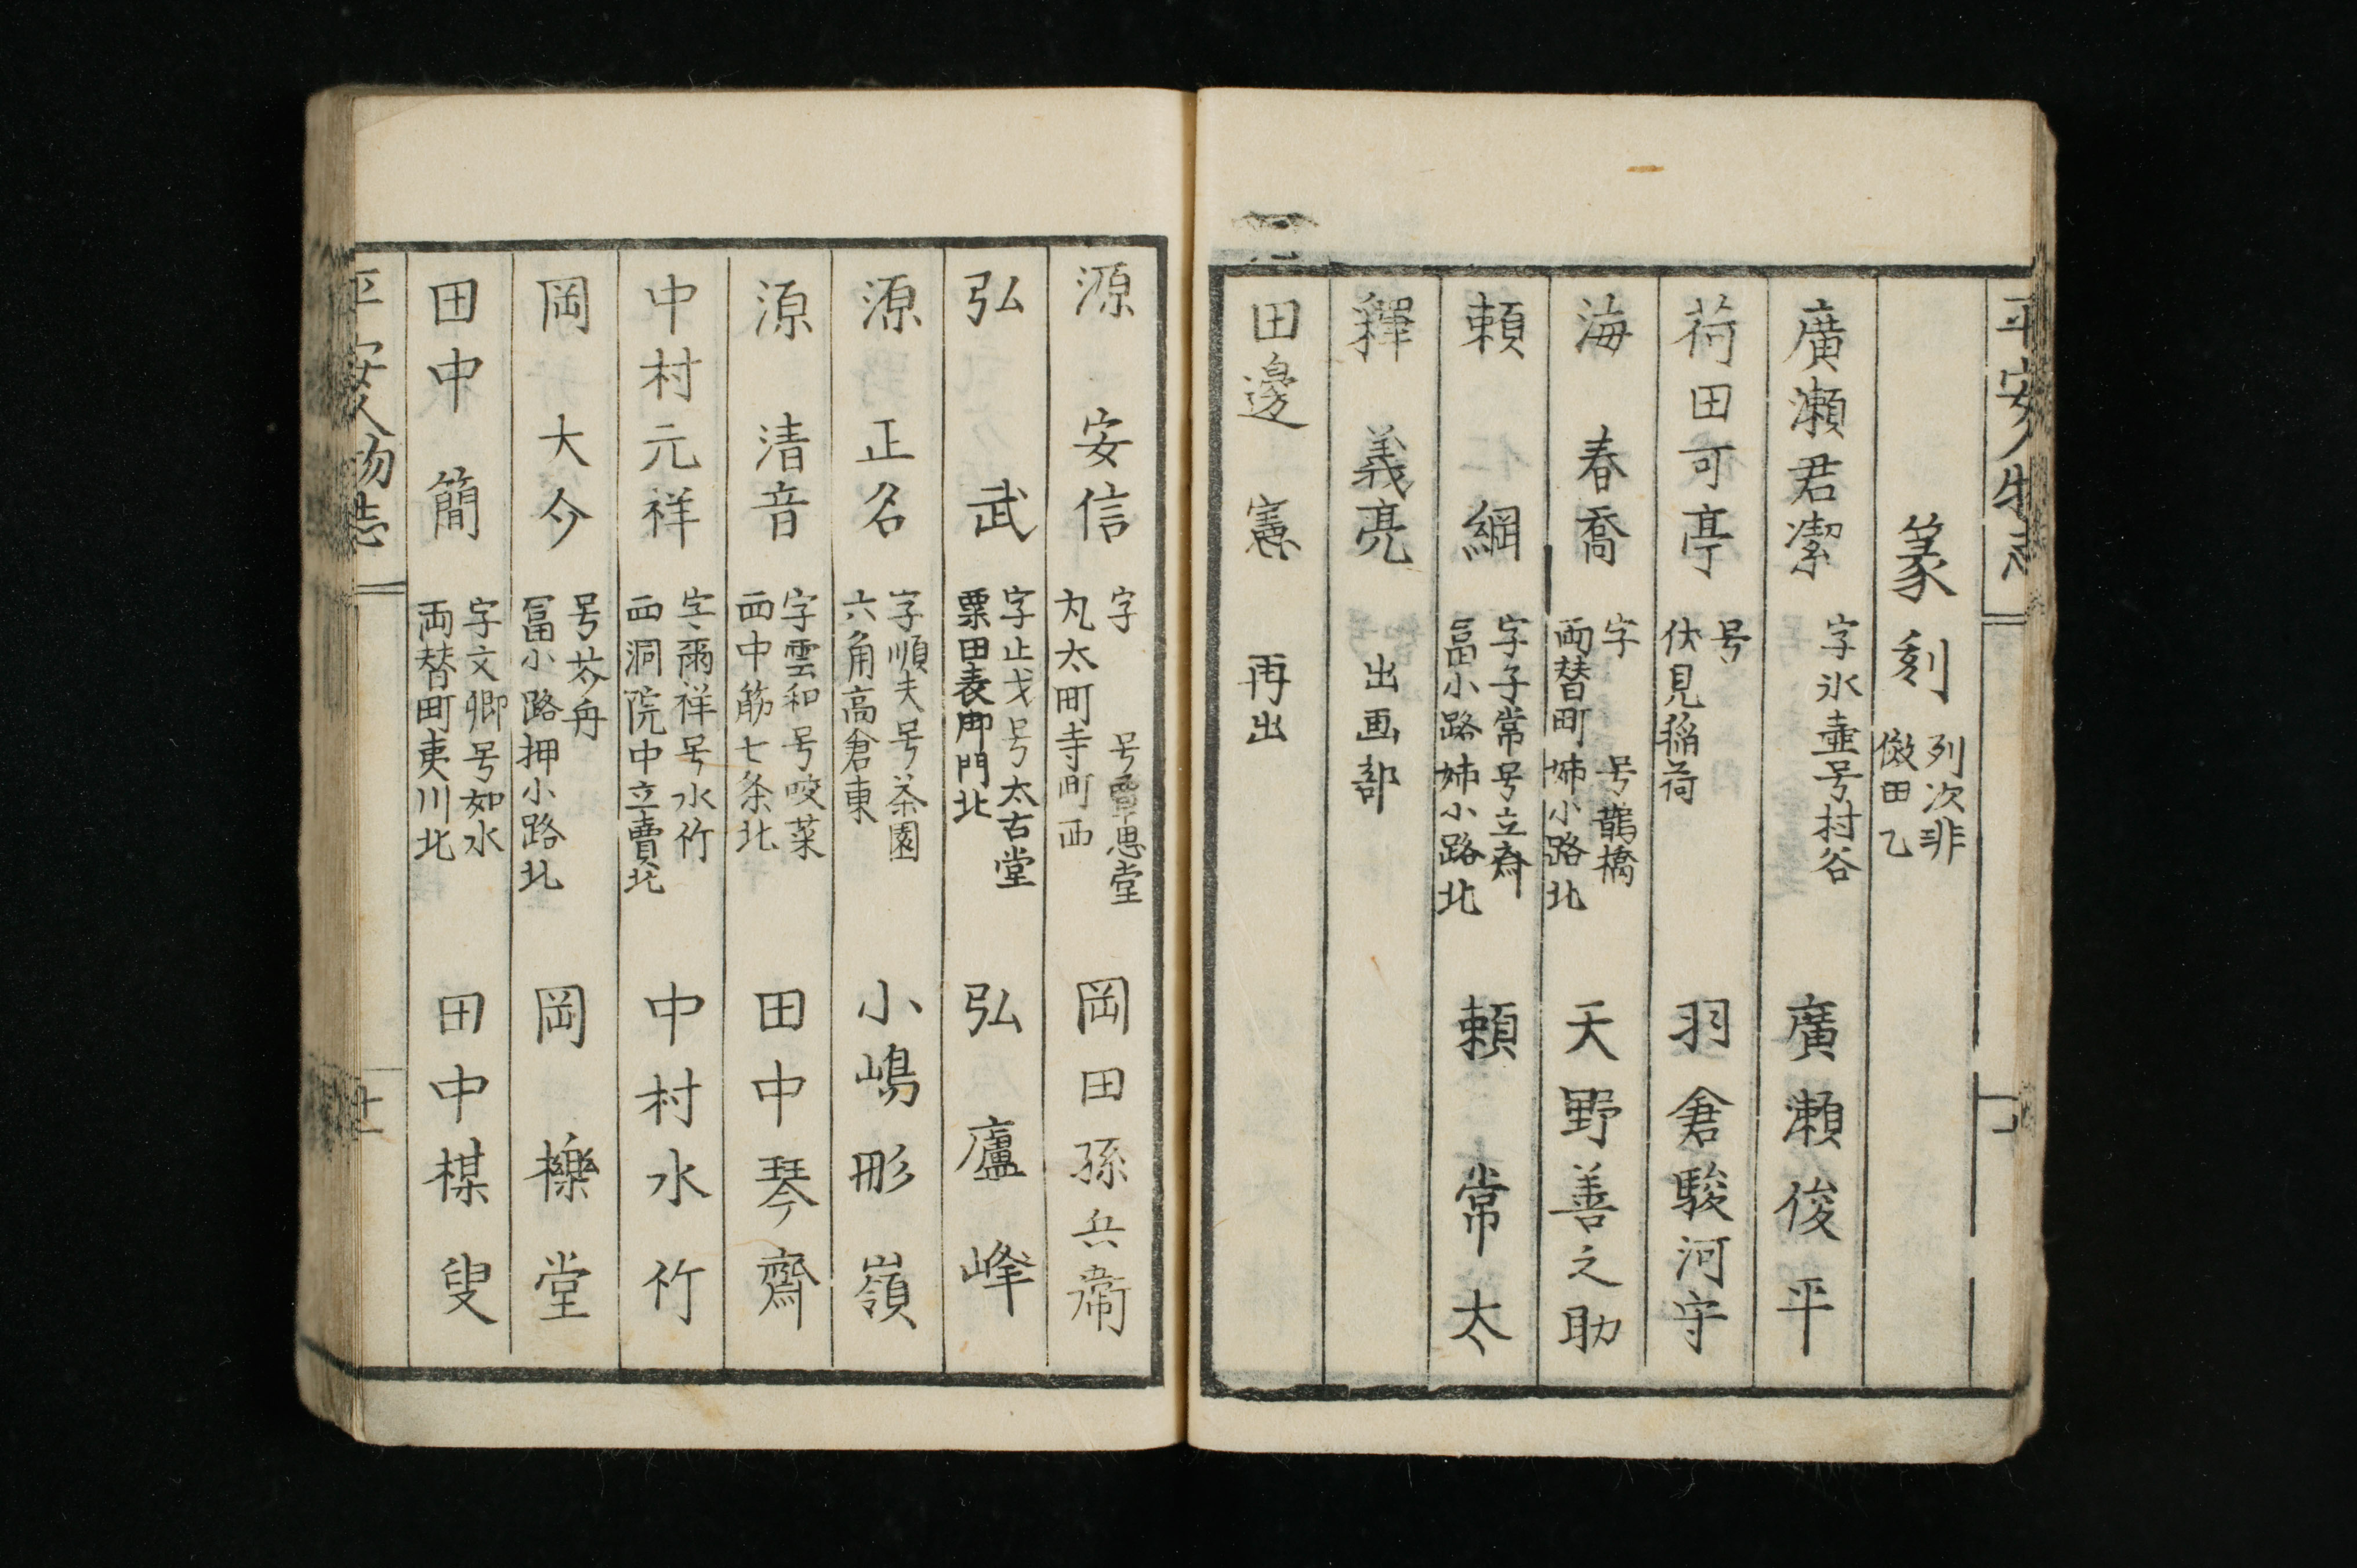 平安人物志
篆刻 列次非
倣甲乙
廣瀬君潔 字氷壷号村谷 廣瀬俊平
荷田可亭 号
伏見稲荷 羽倉駿河守
海 春喬 字 号鵲橋
両替町姉小路北 天野善之助
頼 綱 字子常号立斎
冨小路姉小路北 頼 常太
釋 義亮 出画部
田邊 憲 再出
源 安信 字 号覃思堂
丸太町寺町西 岡田孫兵衛
弘 武 字止戈号太古堂
粟田表御門北 弘 廬峰
源 正名 字順夫号茶園
六角高倉東 小嶋彫嶺
源 清音 字雲和号咬菜
西中筋七条北 田中琴齋
中村元祥 字爾祥号水竹
西洞院中立賣北 中村水竹
岡 大今 号芥舟
冨小路押小路北 岡 櫟堂
田中 簡 字文卿号如水
両替町夷川北 田中楳叟
平安人物志